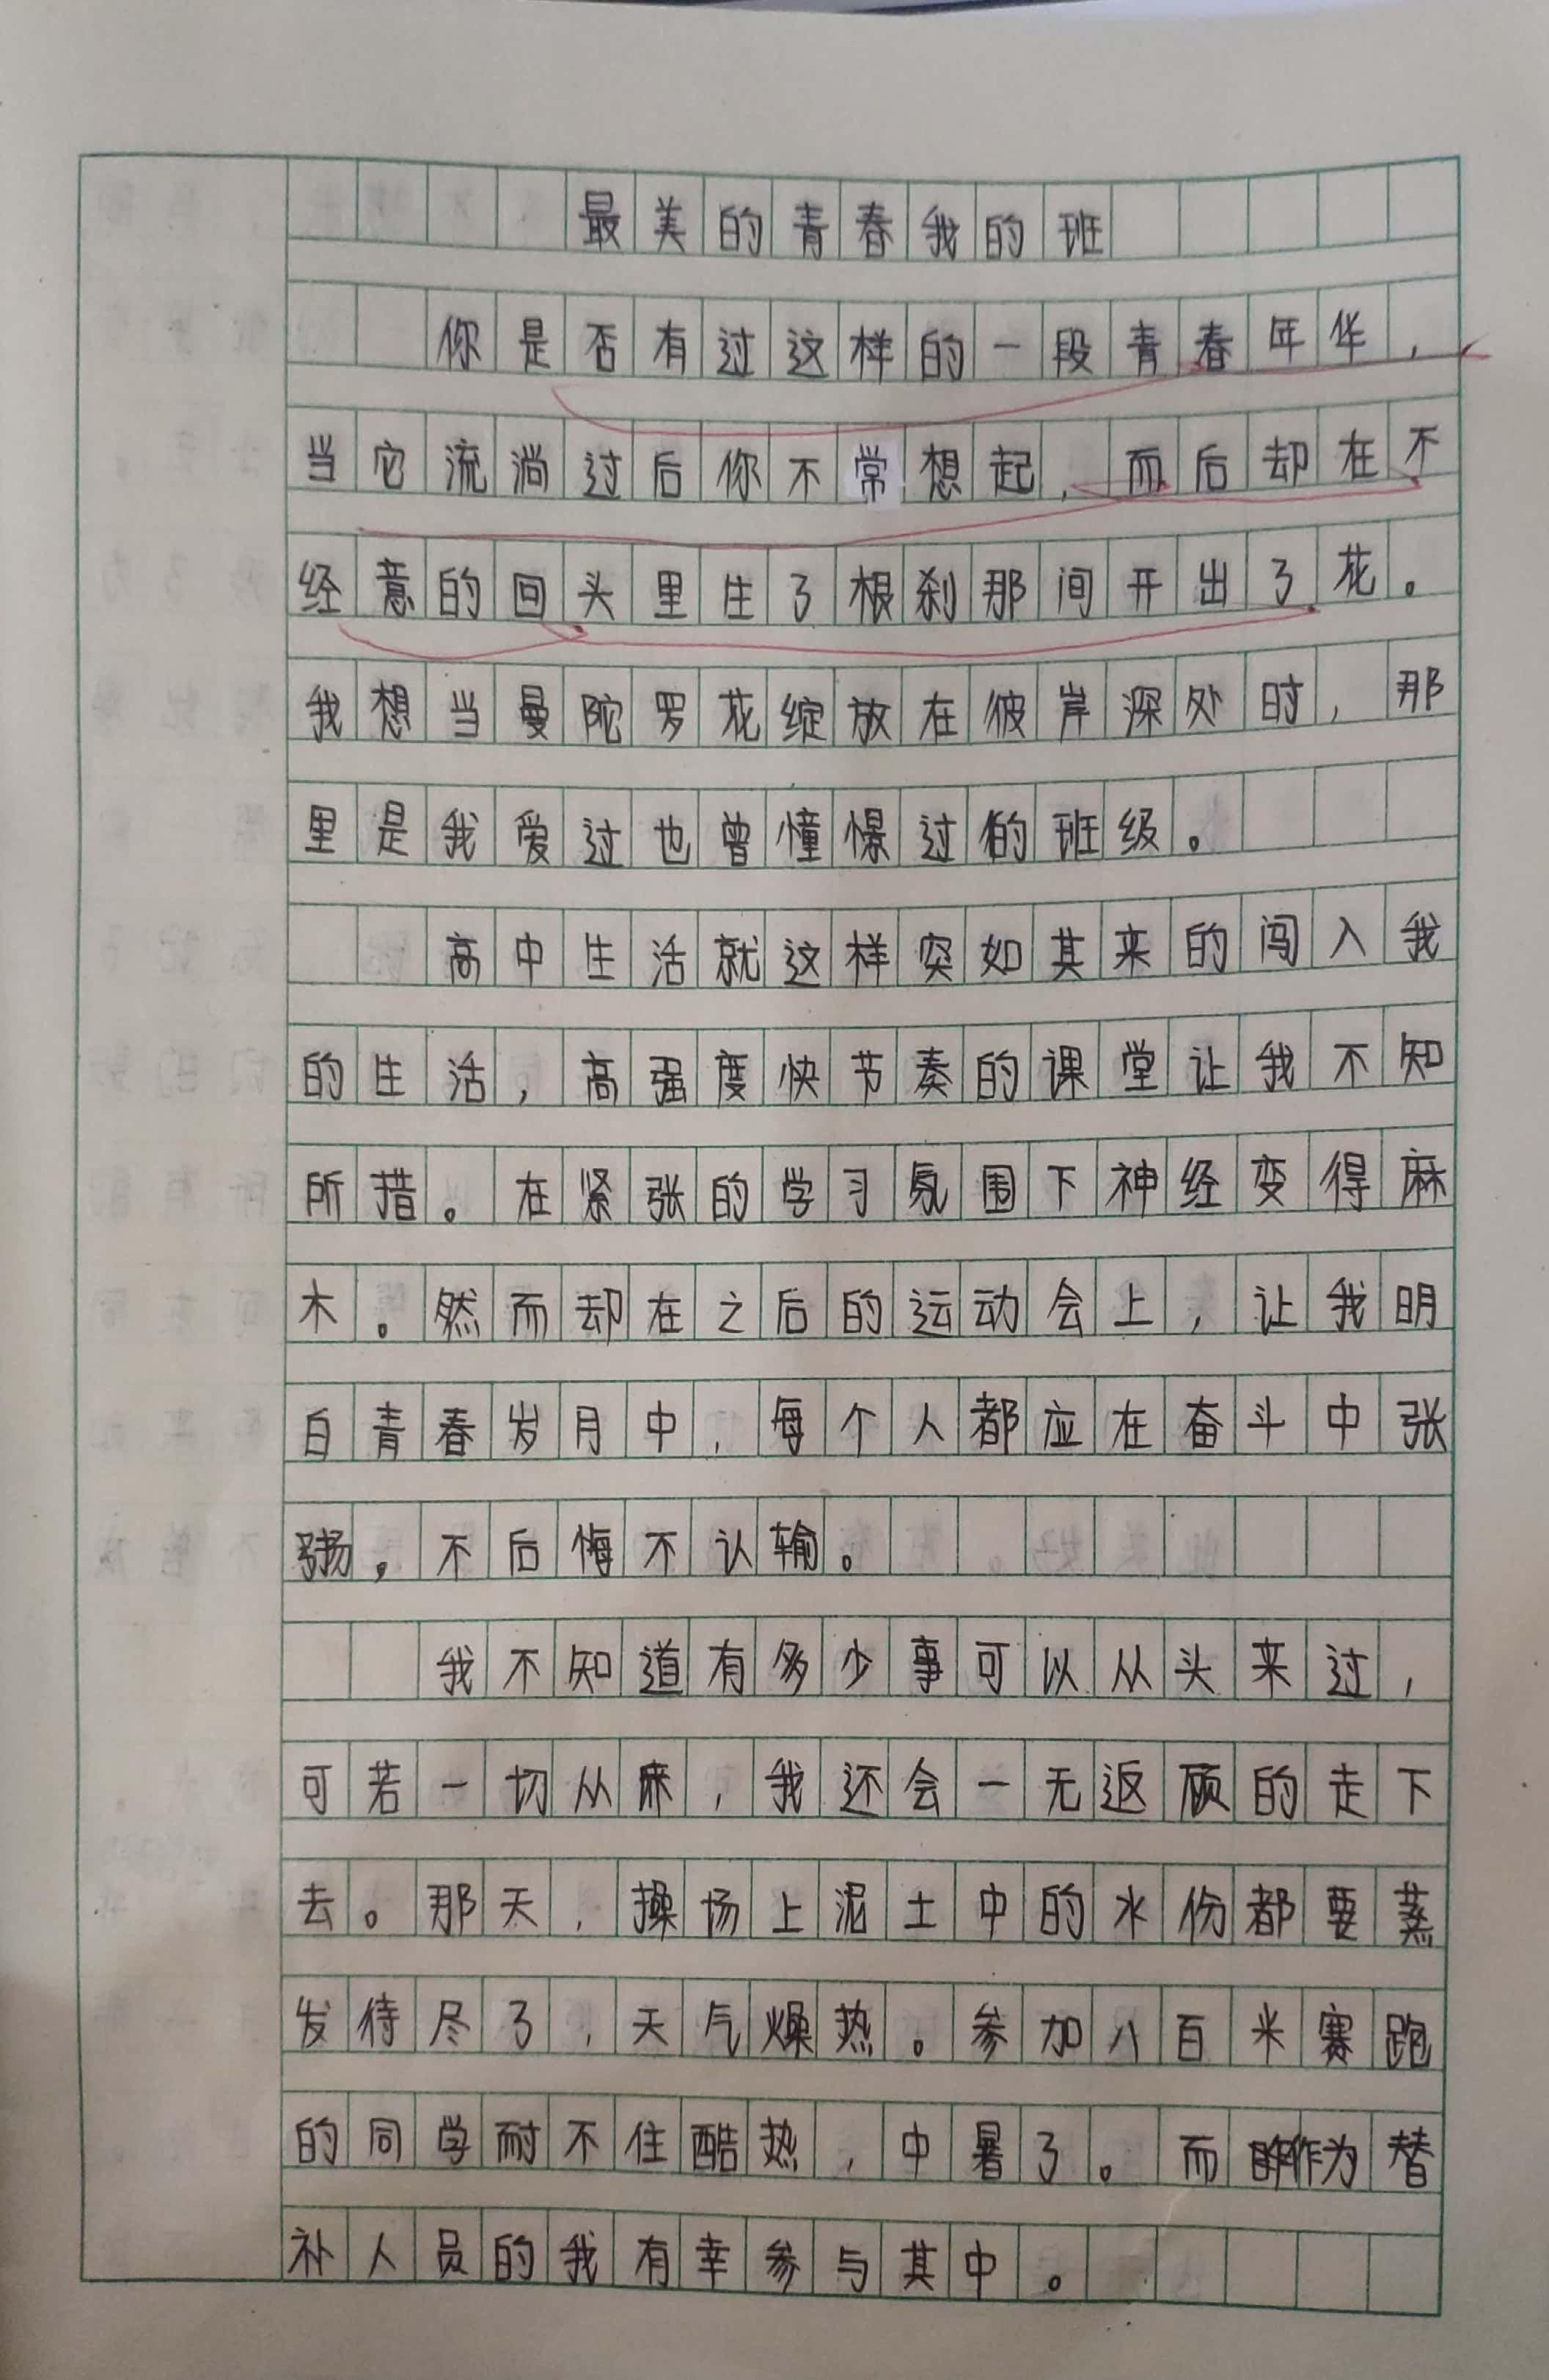 最美的青春我的班
你是否有过这样的一段青春年华，
当它流淌过后你不常想起，而后却在不
经意的回头里生了根刹那间开出了花。
我想当曼陀罗花绽放在彼岸深处时，那
里是我爱过也曾憧憬过的班级。
高中生活就这样突如其来的闯入我
的生活，高强度快节奏的课堂让我不知
所措。在紧张的学习氛围下神经变得麻
木。然而却在之后的运动会上，让我明
白青春岁月中，每个人都应在奋斗中张
扬，不后悔不认输。
我不知道有多少事可以从头来过，
可若一切从来，我还会一无返顾的走下
去。那天，操场上泥土中的水份都要蒸
发待尽了，天气燥热。参加八百米赛跑
的同学耐不住酷热，中暑了。而作为替
补人员的我有幸参与其中。